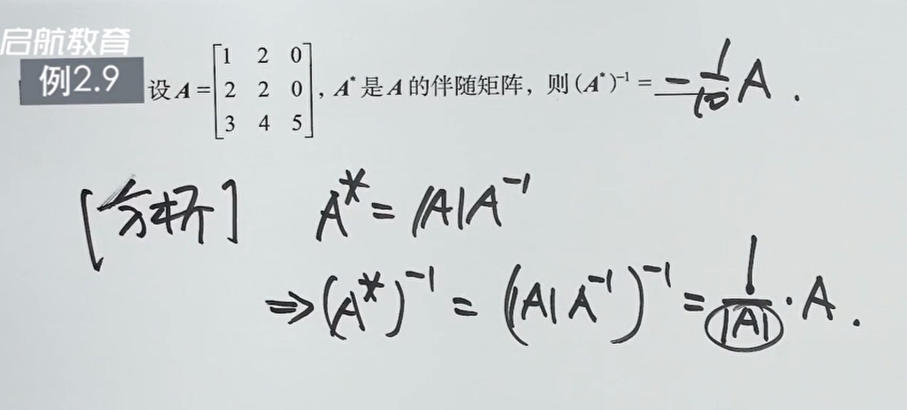 启航教育
例2.9 设 A = [1 2 0; 2 2 0; 3 4 5], A* 是 A 的伴随矩阵，则 (A*)⁻¹ = -1/10 A .
[分析] A* = |A|A⁻¹
⇒ (A*)⁻¹ = (|A|A⁻¹)⁻¹ = 1/|A| · A .